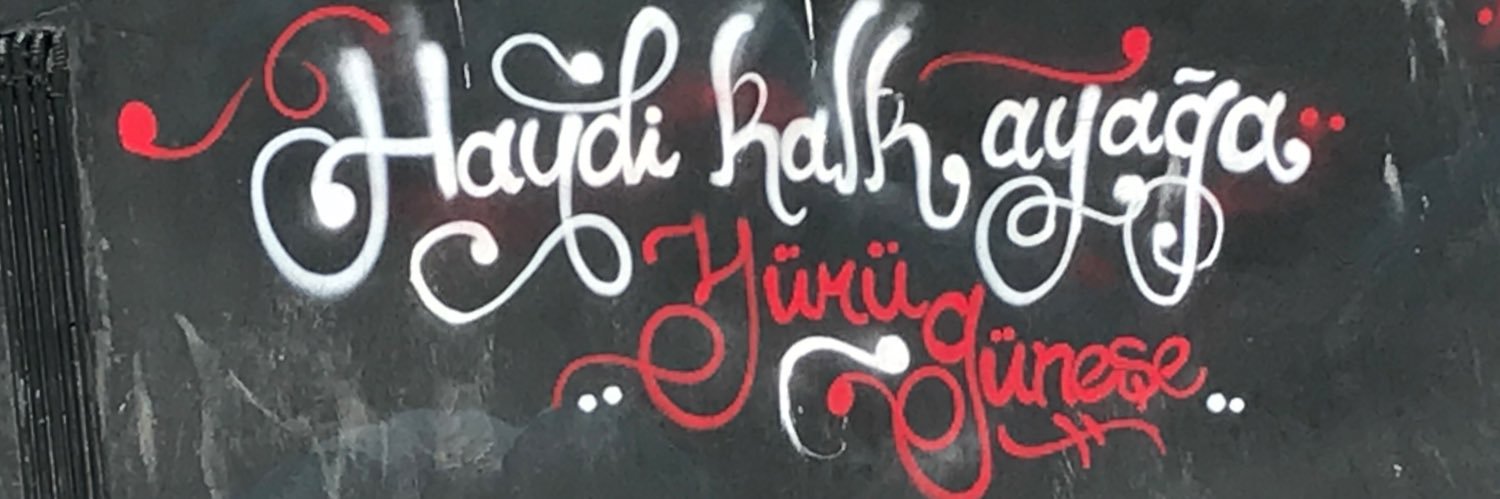 Haydi kalk ayağa..
Yürü güneşe..